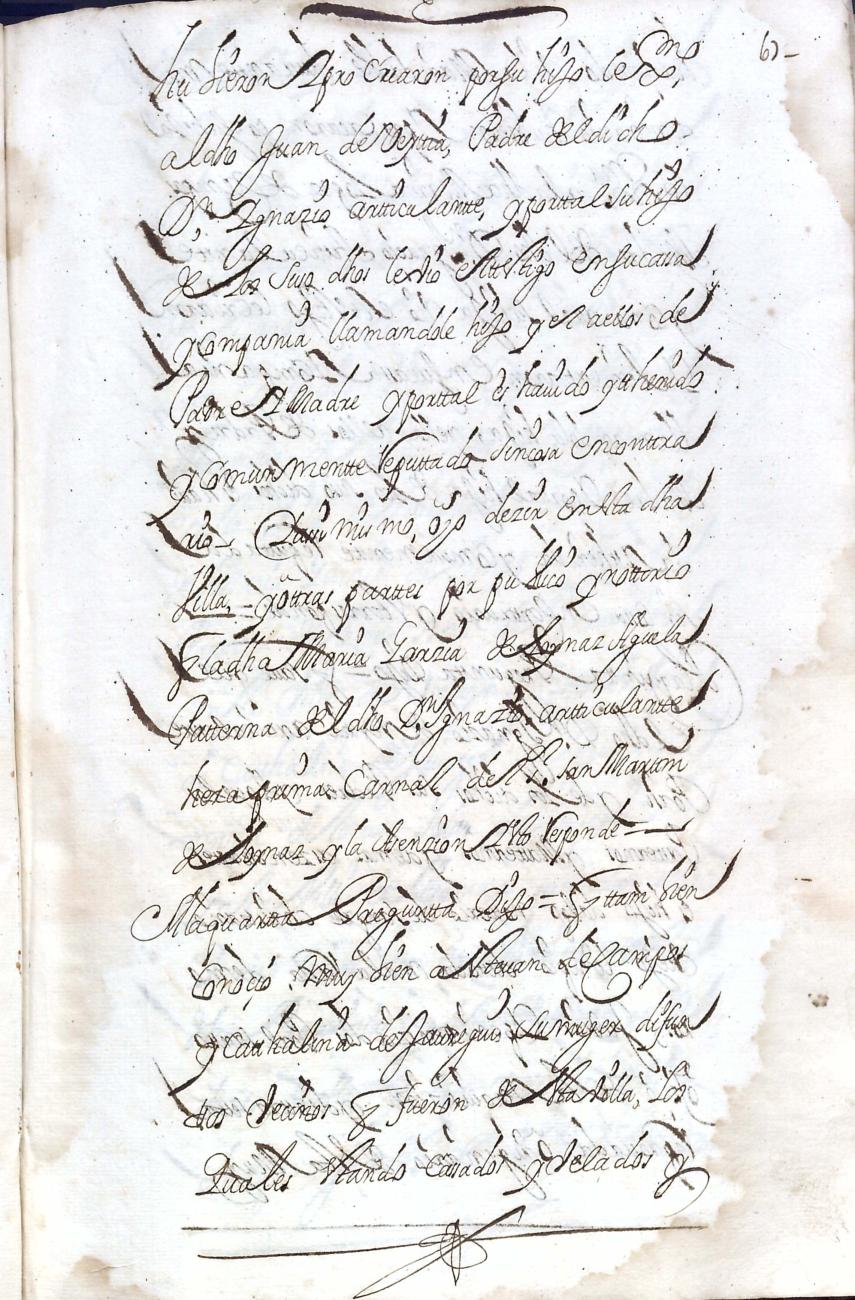 63-
hubieron y procrearon por su hijo le xmo
al dho Juan de Veytia, Padre del dicho
Dn Ygnazio artticulantte, y por ttal su hijo
de los suso dhos le vio estte ttestigo en su cassa
y compania llamandole hijo y el a ellos de
Padre y Madre y por ttal es havido y thenido
y comunmentte Reputtado sin cosa en conttra
rio = Y assi mismo, oyo dezir en esta dha
Villa, = y ottras parttes por publico y nottorio
q la dha Maria Garzia de Loynaz Aguela
Patterna del dho Dn Ygnazio, artticulantte
hera prima Carnal de Sn San Martin
de Loynaz y la attenzion Esto Responde =
A la quartta Pregunta Dijo = q ttambien
Conoçio muy bien a Stevan de Campos
y Cathalina de Jauregui su muger difun
tos Vecinos q fueron de esta Villa, Los
Quales estando Casados y Velados y